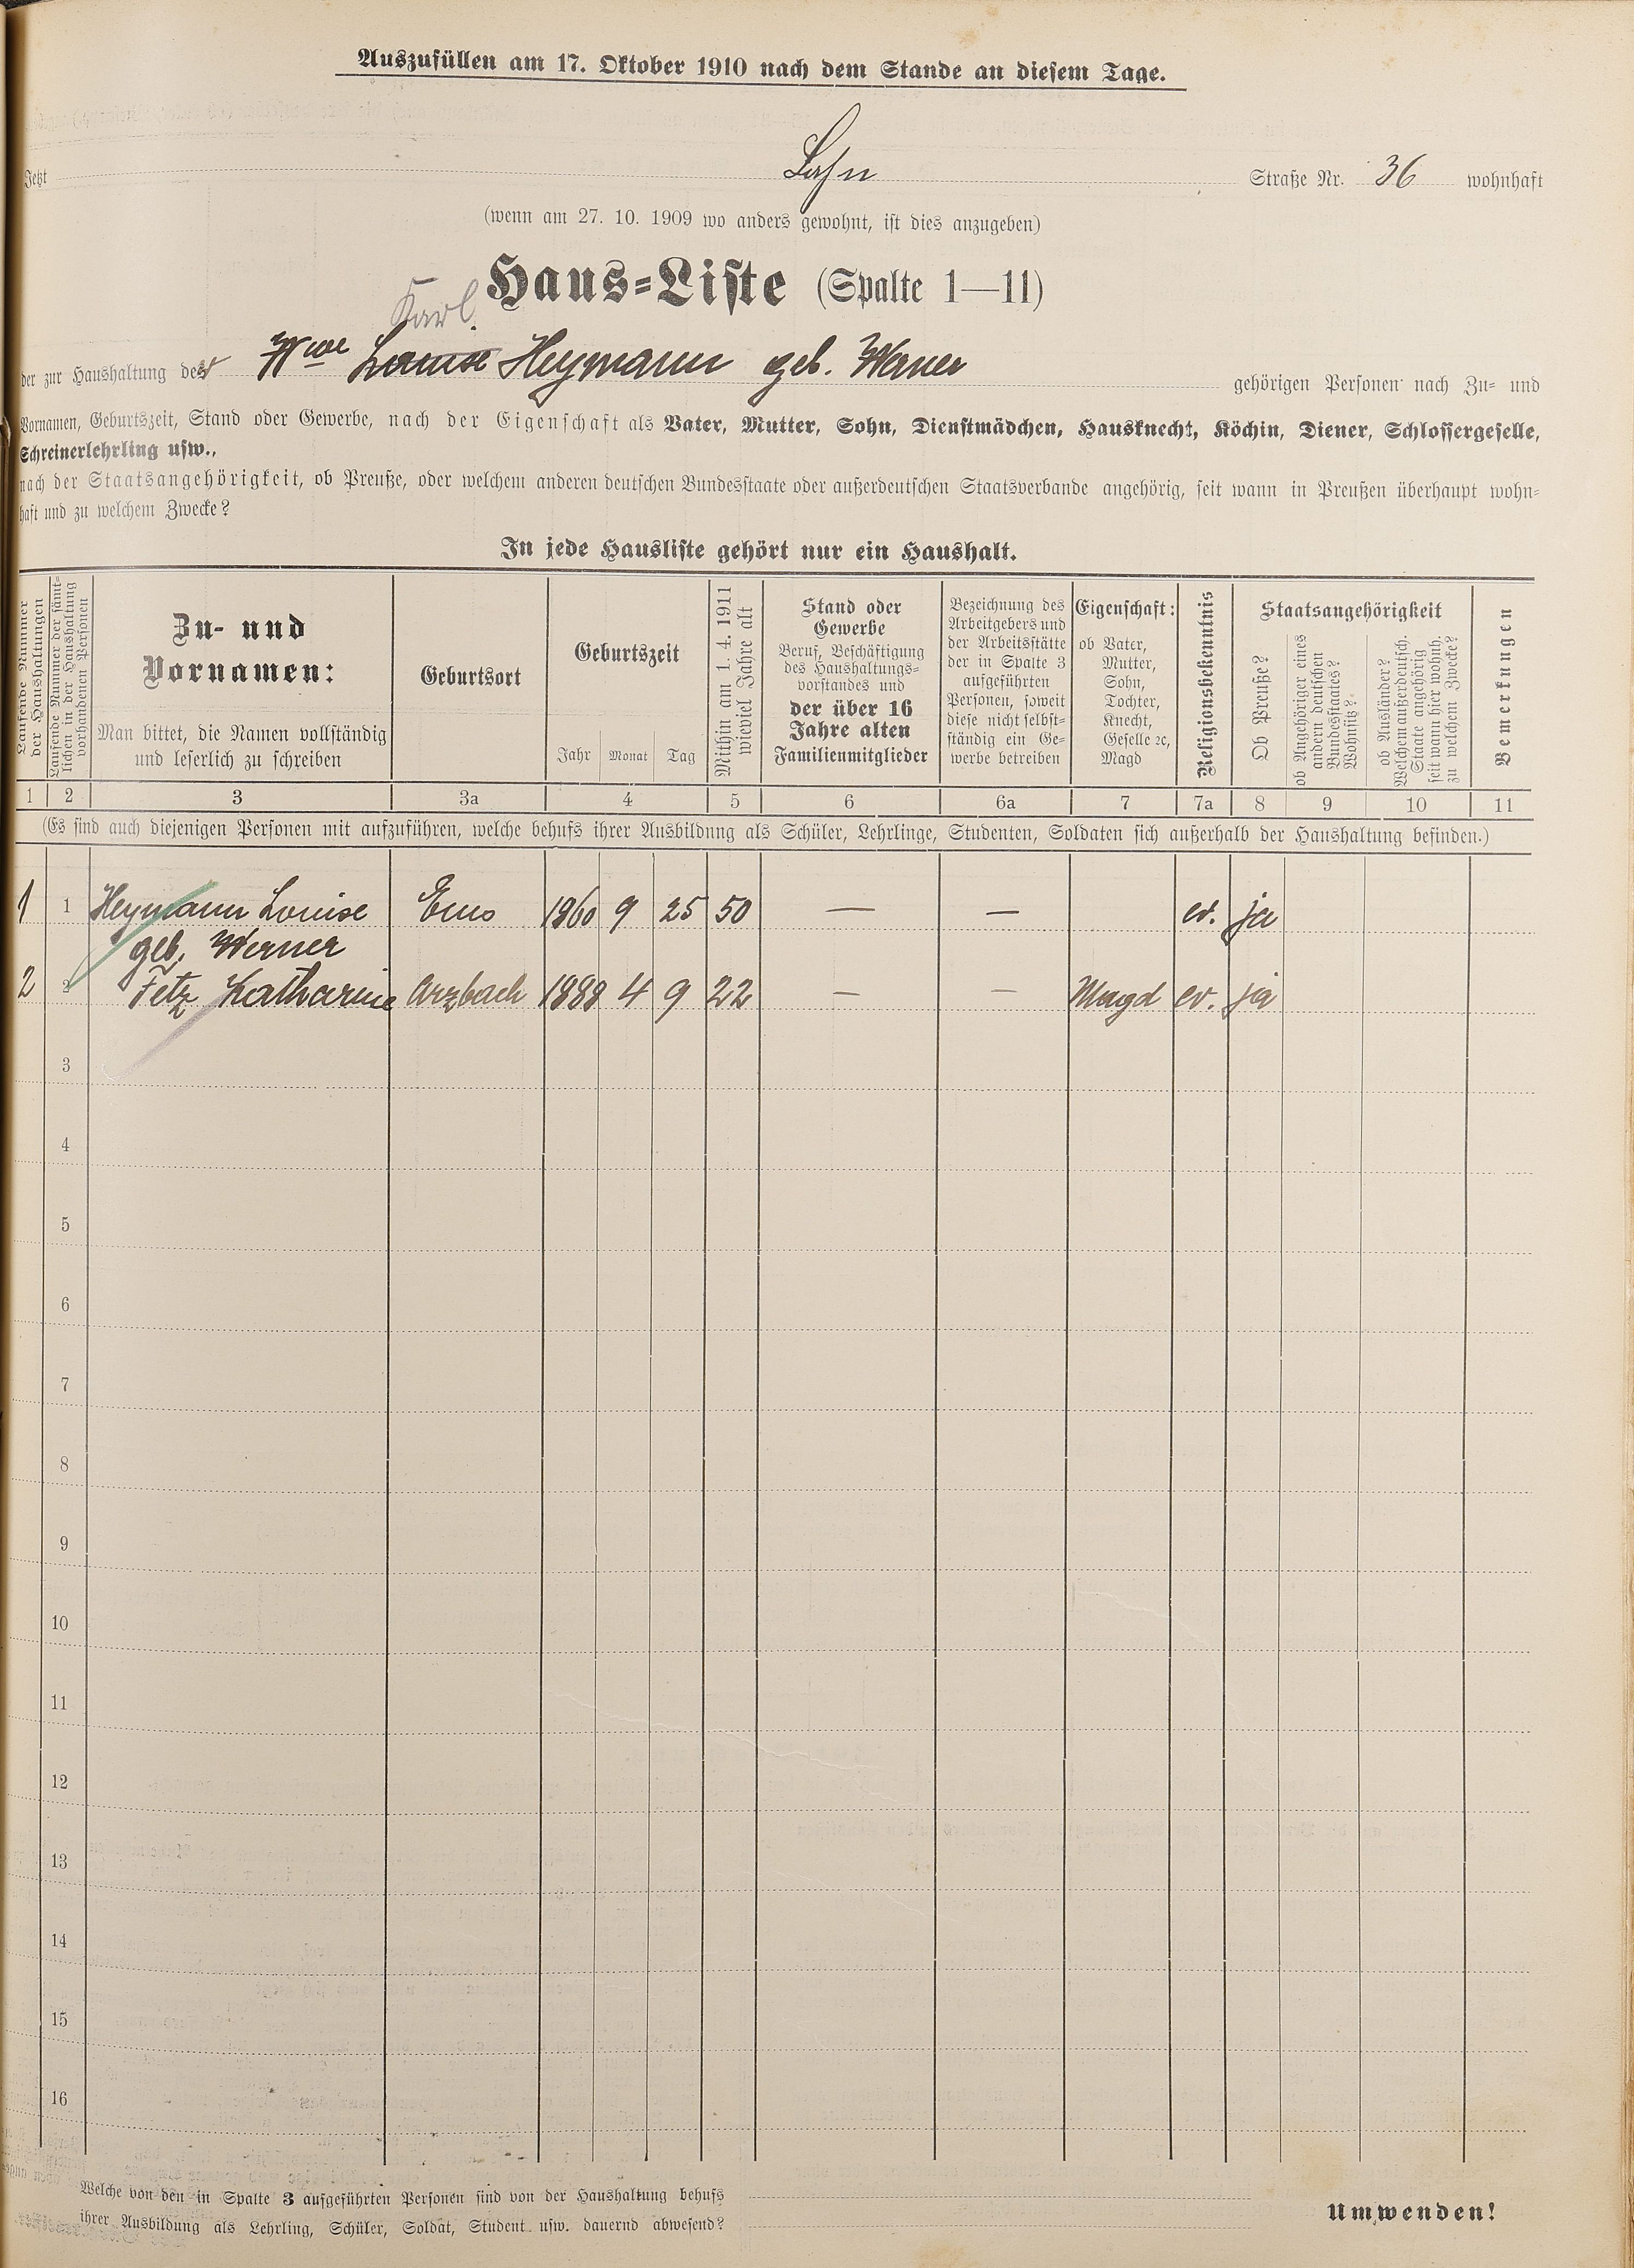 Auszufüllen am 17. Oktober 1910 nach dem Stande an diesem Tage.
Jetzt Lahn Straße Nr. 36 wohnhaft
(wenn am 27. 10. 1909 wo anders gewohnt, ist dies anzugeben)
Haus=Liste (Spalte 1—11)
Karl
der zur Haushaltung der Wwe Louise Heymann geb. Werner gehörigen Personen nach Zu= und
Vornamen, Geburtszeit, Stand oder Gewerbe, nach der Eigenschaft als Vater, Mutter, Sohn, Dienstmädchen, Hausknecht, Köchin, Diener, Schlossergeselle,
Schreinerlehrling usw.,
nach der Staatsangehörigkeit, ob Preuße, oder welchem anderen deutschen Bundesstaate oder außerdeutschen Staatsverbande angehörig, seit wann in Preußen überhaupt wohn=
haft und zu welchem Zwecke?
In jede Hausliste gehört nur ein Haushalt.
Laufende Nummer
der Haushaltungen
Laufende Nummer der sämt=
lichen in der Haushaltung
vorhandenen Personen
Zu- und
Vornamen:
Man bittet, die Namen vollständig
und leserlich zu schreiben
Geburtsort
Geburtszeit
Jahr Monat Tag
Mithin am 1. 4. 1911
wieviel Jahre alt
Stand oder
Gewerbe
Beruf, Beschäftigung
des Haushaltungs=
vorstandes und
der über 16
Jahre alten
Familienmitglieder
Bezeichnung des
Arbeitgebers und
der Arbeitsstätte
der in Spalte 3
aufgeführten
Personen, soweit
diese nicht selbst=
ständig ein Ge=
werbe betreiben
Eigenschaft:
ob Vater,
Mutter,
Sohn,
Tochter,
Knecht,
Geselle ꝛc,
Magd
Religionsbekenntnis
Staatsangehörigkeit
Ob Preuße?
ob Angehöriger eines
andern deutschen
Bundesstaates?
Wohnsitz?
ob Ausländer?
Welchem außerdeutsch.
Staate angehörig
seit wann hier wohnh.
zu welchem Zwecke?
Bemerkungen
1 2 3 3a 4 5 6 6a 7 7a 8 9 10 11
(Es sind auch diejenigen Personen mit aufzuführen, welche behufs ihrer Ausbildung als Schüler, Lehrlinge, Studenten, Soldaten sich außerhalb der Haushaltung befinden.)
1 1 Heymann Louise Ems 1860 9 25 50 — — ev. ja
geb. Werner
2 2 Fetz Katharine Arzbach 1888 4 9 22 — — Magd ev. ja
3
4
5
6
7
8
9
10
11
12
13
14
15
16
Welche von den in Spalte 3 aufgeführten Personen sind von der Haushaltung behufs
ihrer Ausbildung als Lehrling, Schüler, Soldat, Student usw. dauernd abwesend?
Umwenden!